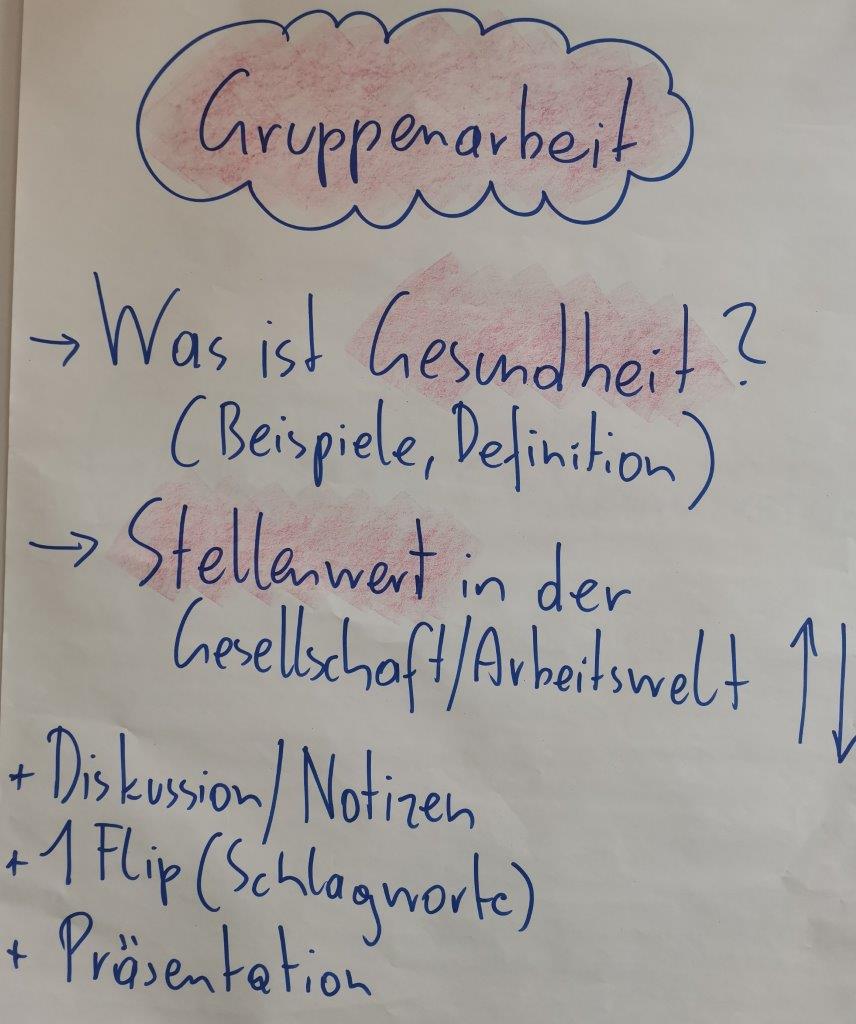 Gruppenarbeit
→ Was ist Gesundheit?
(Beispiele, Definition)
→ Stellenwert in der
Gesellschaft/Arbeitswelt ↑↓
+ Diskussion/Notizen
+ 1 Flip (Schlagworte)
+ Präsentation